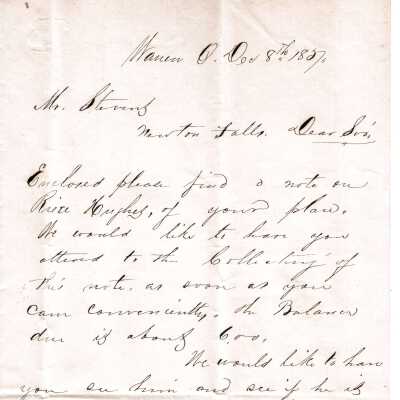 Warren O. Dec 8th 1857.
Mr. Stevens
Newton Falls. Dear Sir,
Enclosed please find a note on
Hughes, of your place.
We would like to have you
attend to the Collecting of
this note, as soon as you
can conveniently. the Balance
due is about 600,
We would like to have
you see him and see if he is